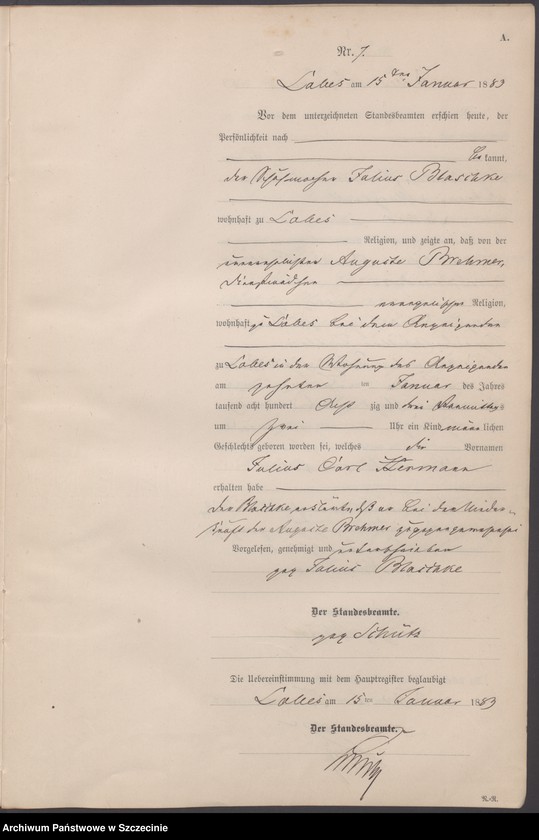 A.
Nr. 7.
Labes am 15ten Januar 1883
Vor dem unterzeichneten Standesbeamten erschien heute, der
Persönlichkeit nach
be kannt,
der Schuhmacher Julius Blaschke
wohnhaft zu Labes
Religion, und zeigte an, daß von der
unverehelichten Auguste Brehmer,
Dienstmädchen
evangelischer Religion,
wohnhaft zu Labes bei dem Anzeigenden
zu Labes in der Wohnung des Anzeigenden
am zehnten ten Januar des Jahres
tausend acht hundert acht zig und drei Vormittags
um zwei Uhr ein Kind männ lichen
Geschlechts geboren worden sei, welches die Vornamen
Julius Carl Hermann
erhalten habe
der Blaschke erklärte, daß er bei der Nieder-
kunft der Auguste Brehmer zugegen gewesen sei
Vorgelesen, genehmigt und unterschrieben
gez Julius Blaschke
Der Standesbeamte.
gez Schütz
Die Uebereinstimmung mit dem Hauptregister beglaubigt
Labes am 15 ten Januar 1883
Der Standesbeamte.
R.-R.
Archiwum Państwowe w Szczecinie